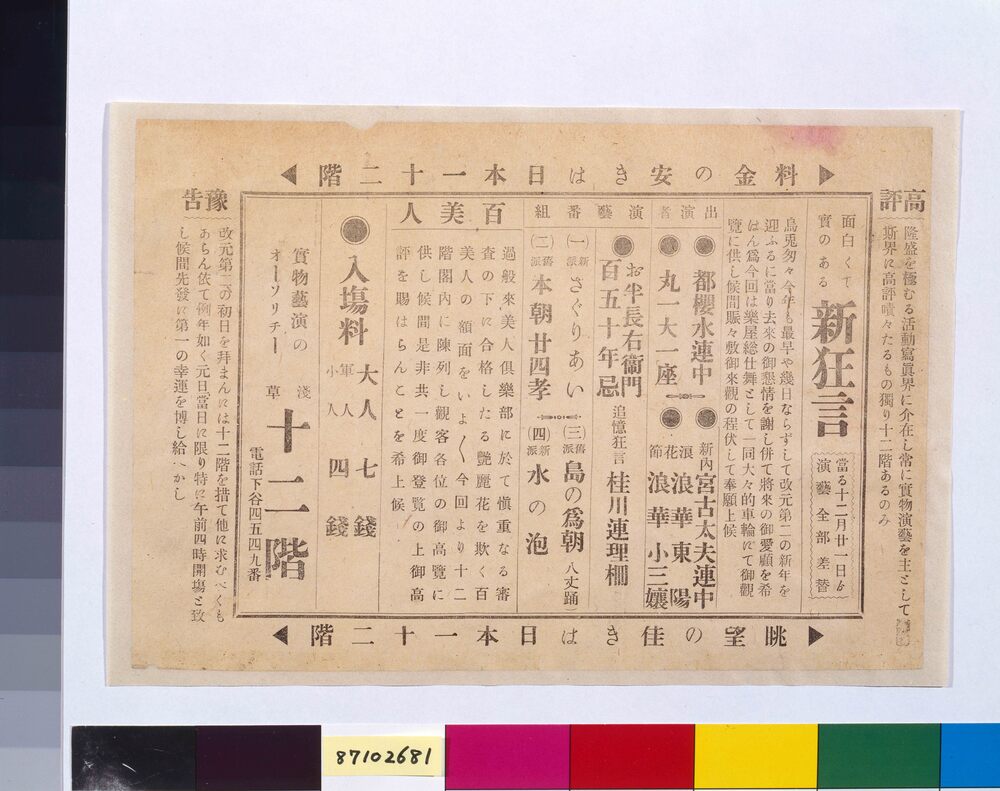 料金の安きは日本一十二階
高評
隆盛を極むる活動寫眞界に介在し常に實物演藝を主として
斯界に高評嘖々たるもの獨り十二階あるのみ
面白くて
實のある
新狂言
當る十二月廿一日ゟ
演藝全部差替
烏兎匆々今年も最早や幾日ならずして改元第二の新年を
迎ふるに當り去来の御懇情を謝し併て將來の御愛顧を希
はん爲今回は樂屋総仕舞として一同大々的車輪にて御観
覽に供し候間賑々敷御來觀の程伏して奉願上候
出演者
●都櫻水連中
●丸一大一座
●新内宮古太夫連中
●浪花節
浪華東陽
浪華小三孃
演藝番組
●お半長右衞門
百五十年忌
追憶狂言
桂川連理柵
(一)新派さぐりあい
(二)舊派本朝廿四孝
(三)舊派島の爲朝 八丈踊
(四)新派水の泡
百美人
過般來美人倶樂部に於て愼重なる審
査の下に合格したる艶麗花を欺く百
美人の額面をいよ〱今回より十二
階閣内に陳列し觀客各位の御高覽に
供し候間是非共一度御登覽の上御高
評を賜はらんことを希上候
●入塲料
大人七錢
軍人
小人
四錢
實物藝演の
オーソリチー
淺草
十二階
電話下谷四五四九番
豫告
改元第二の初日を拜まんには十二階を措て他に求むべくも
あらん依て例年如く元旦當日に限り特に午前四時開塲と致
し候間先發に第一の幸運を博し給へかし
眺望の佳きは日本一十二階
87102681